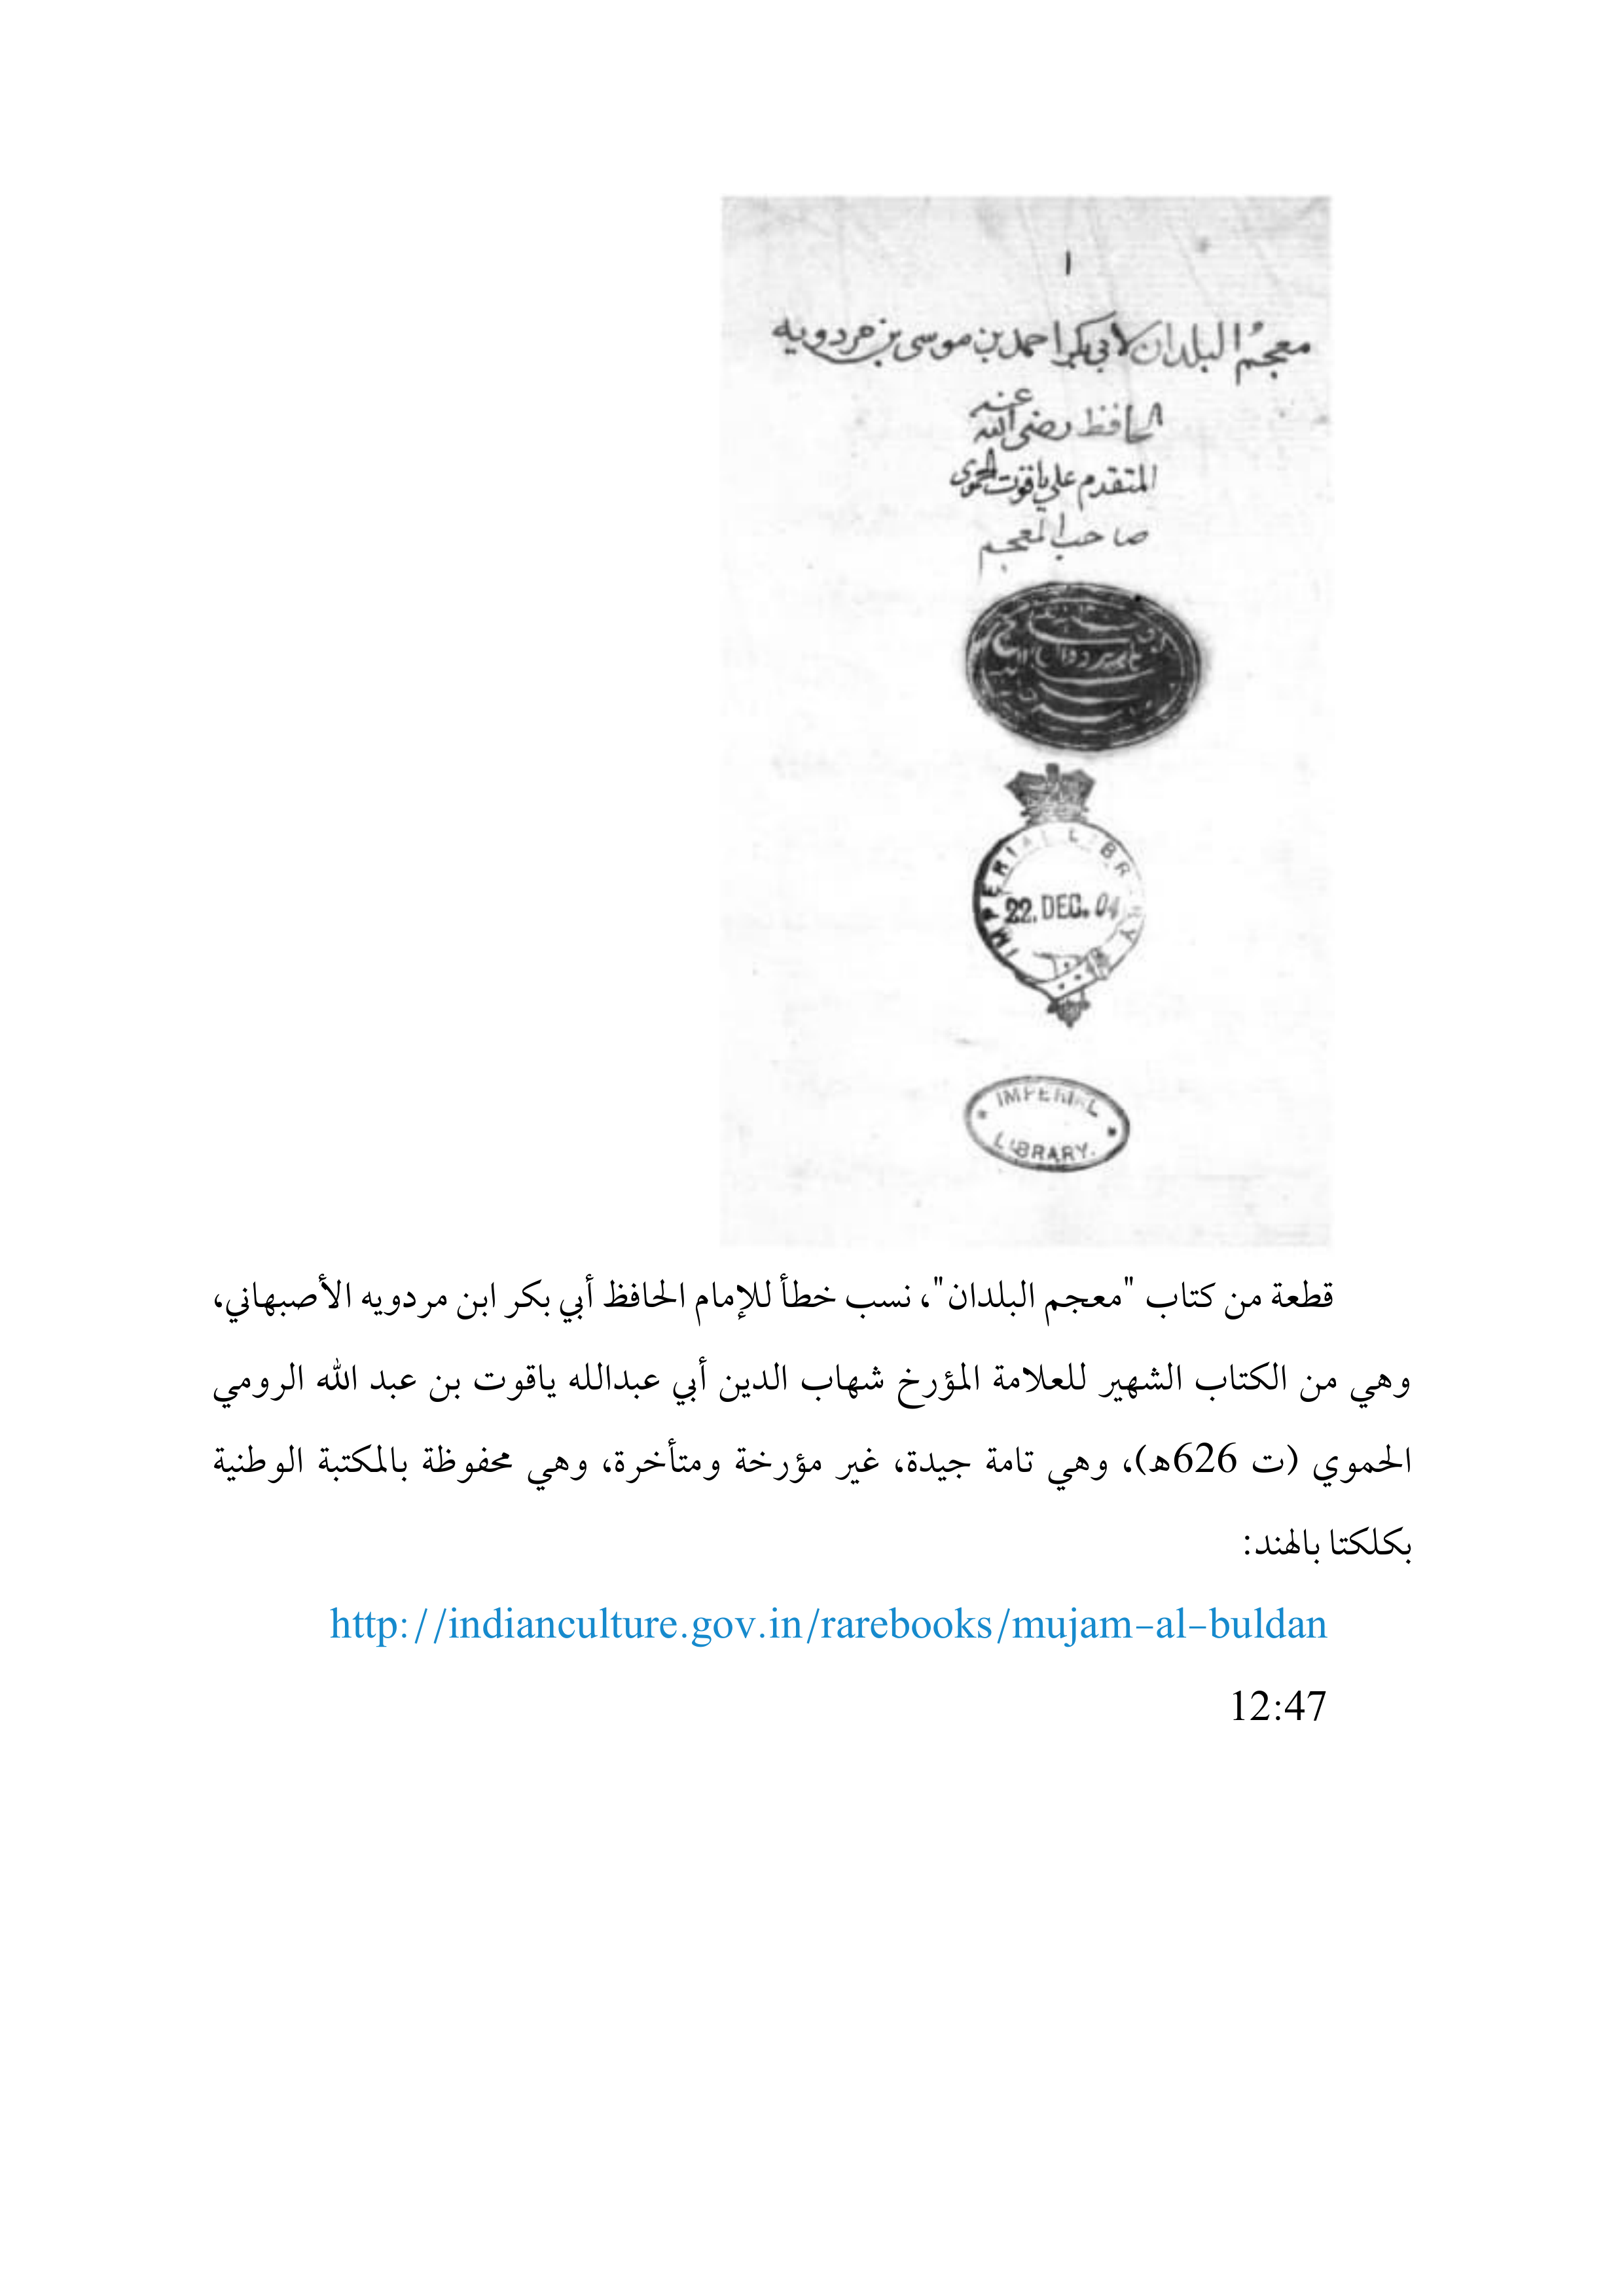 ١
معجمُ البلدان لابي بكر احمد بن موسى بن مردويه
الحافظ رضى الله عنه
المتقدم على ياقوت الحموى
صاحب المعجم
IMPERIAL LIBRARY
22. DEC. 04
IMPERIAL
LIBRARY.
قطعة من كتاب "معجم البلدان"، نسب خطأ للإمام الحافظ أبي بكر ابن مردويه الأصبهاني،
وهي من الكتاب الشهير للعلامة المؤرخ شهاب الدين أبي عبدالله ياقوت بن عبد الله الرومي
الحموي (ت 626ه)، وهي تامة جيدة، غير مؤرخة ومتأخرة، وهي محفوظة بالمكتبة الوطنية
بكلكتا بالهند:
http://indianculture.gov.in/rarebooks/mujam-al-buldan
12:47